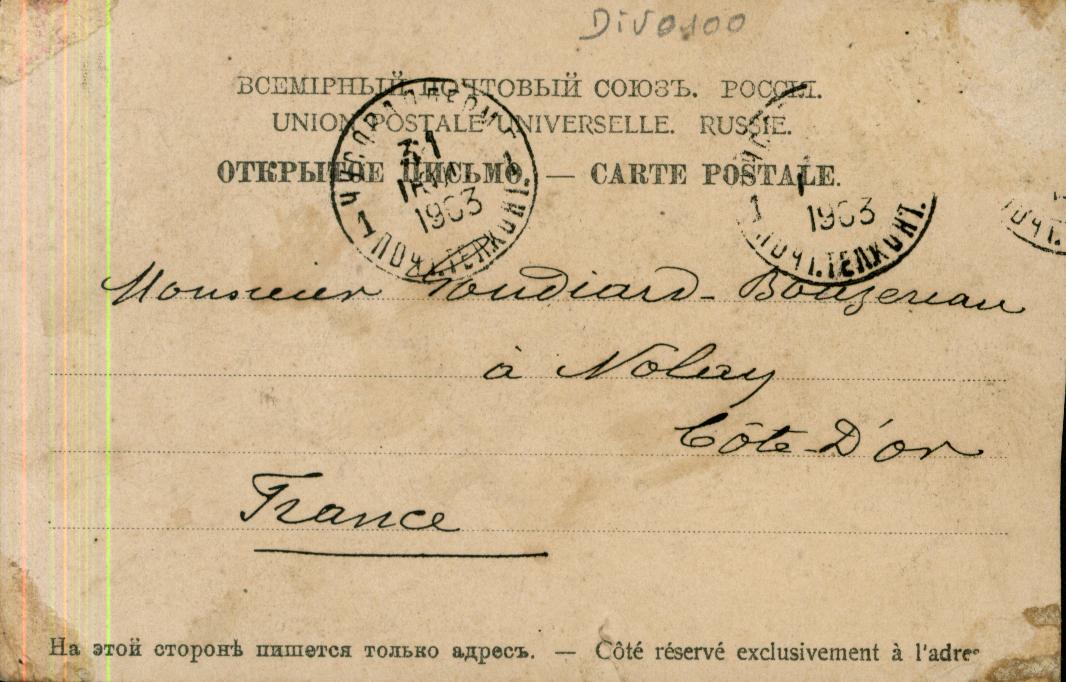 Div0100
ВСЕМІРНЫЙ ПОЧТОВЫЙ СОЮЗЪ. РОССІЯ.
UNION POSTALE UNIVERSELLE. RUSSIE.
ОТКРЫТОЕ ПИСЬМО. — CARTE POSTALE.
31
1903
1
1
ПОЧТ.ТЕЛ.КОНТ.
1903
1
ПОЧТ.ТЕЛ.КОНТ.
Monsieur - Bouzereau
à Nolay
Côte-D'or
France
На этой сторонѣ пишется только адресъ. — Côté réservé exclusivement à l'adres